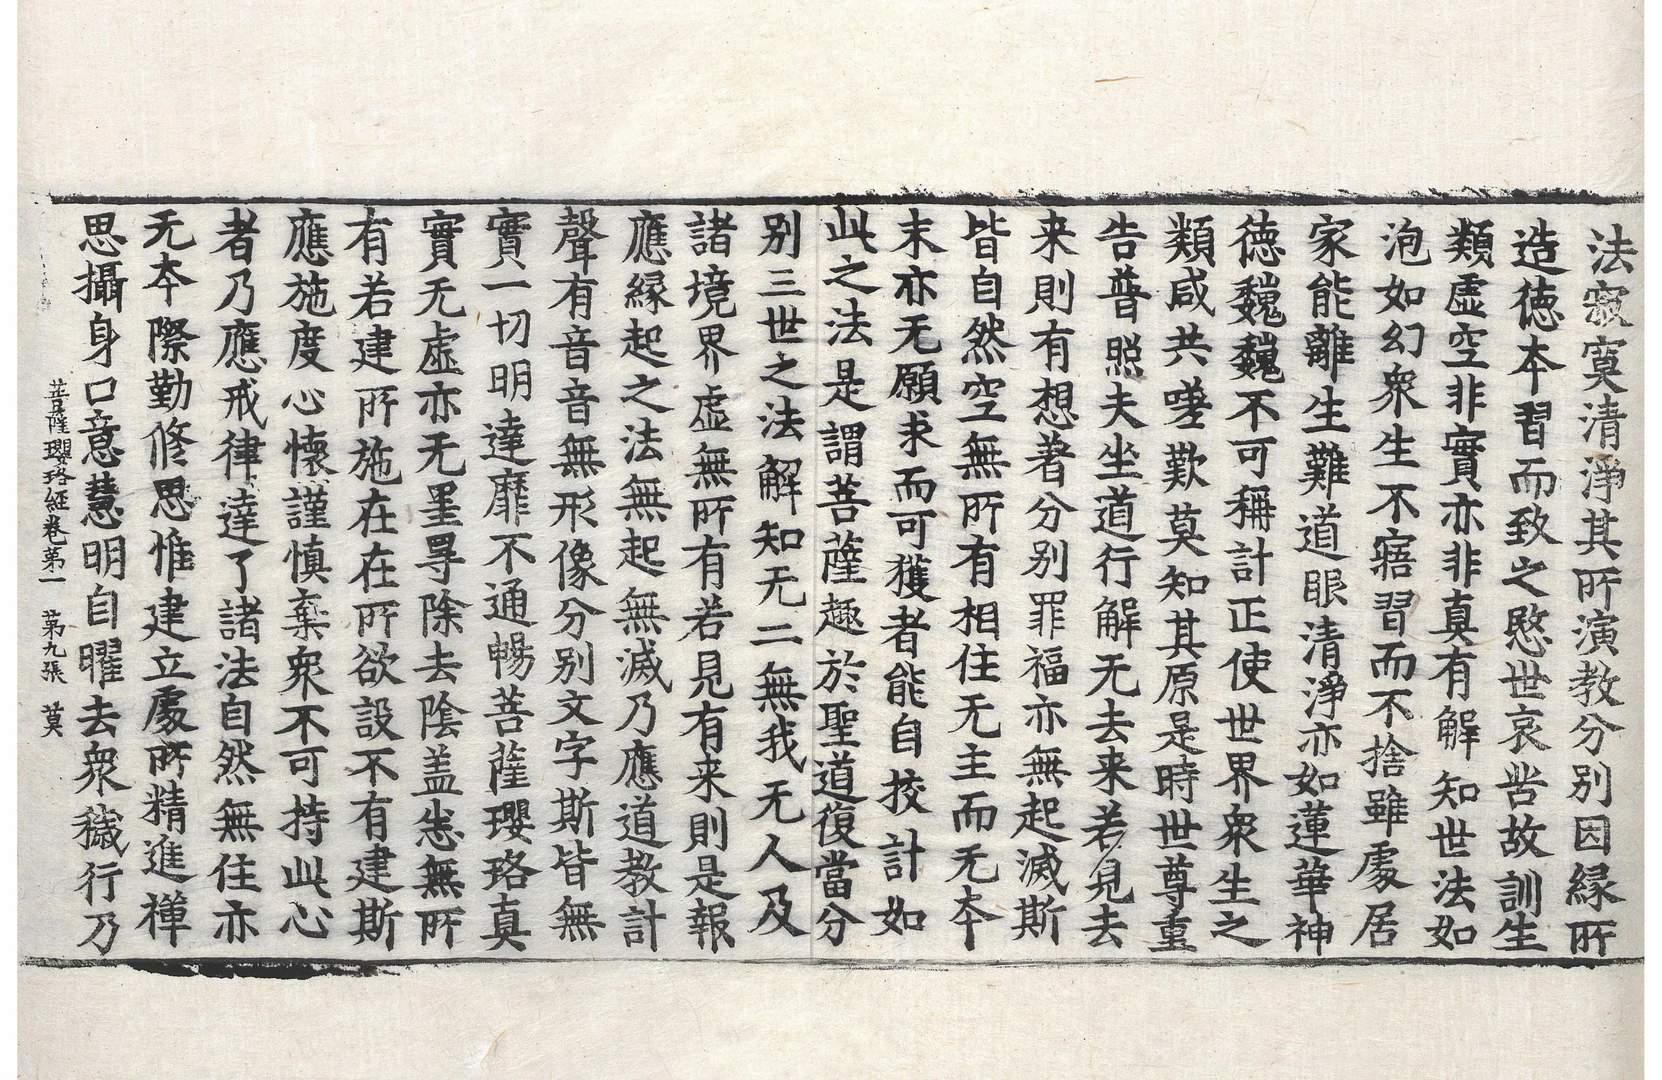 法寂寞清淨其所演教分別因緣所
造德本習而致之愍世哀苦故訓生
類虛空非實亦非真有解知世法如
泡如幻衆生不寤習而不捨雖處居
家能離生難道眼清淨亦如蓮華神
德巍巍不可稱計正使世界衆生之
類咸共嗟歎莫知其原是時世尊重
告普照夫坐道行解无去来若見去
来則有想著分別罪福亦無起滅斯
皆自然空無所有相住无主而无本
末亦无願求而可獲者能自挍計如
此之法是謂菩薩趣於聖道復當分
別三世之法解知无二無我无人及
諸境界虛無所有若見有来則是報
應緣起之法無起無滅乃應道教計
聲有音音無形像分別文字斯皆無
實一切明達靡不通暢菩薩瓔珞真
實无虛亦无罣㝵除去陰盖悉無所
有若建所施在在所欲設不有建斯
應施度心懷謹慎棄衆不可持此心
者乃應戒律達了諸法自然無住亦
无本際勤修思惟建立處所精進禪
思攝身口意慧明自曜去衆穢行乃
菩薩瓔珞經卷第一　第九張　莫